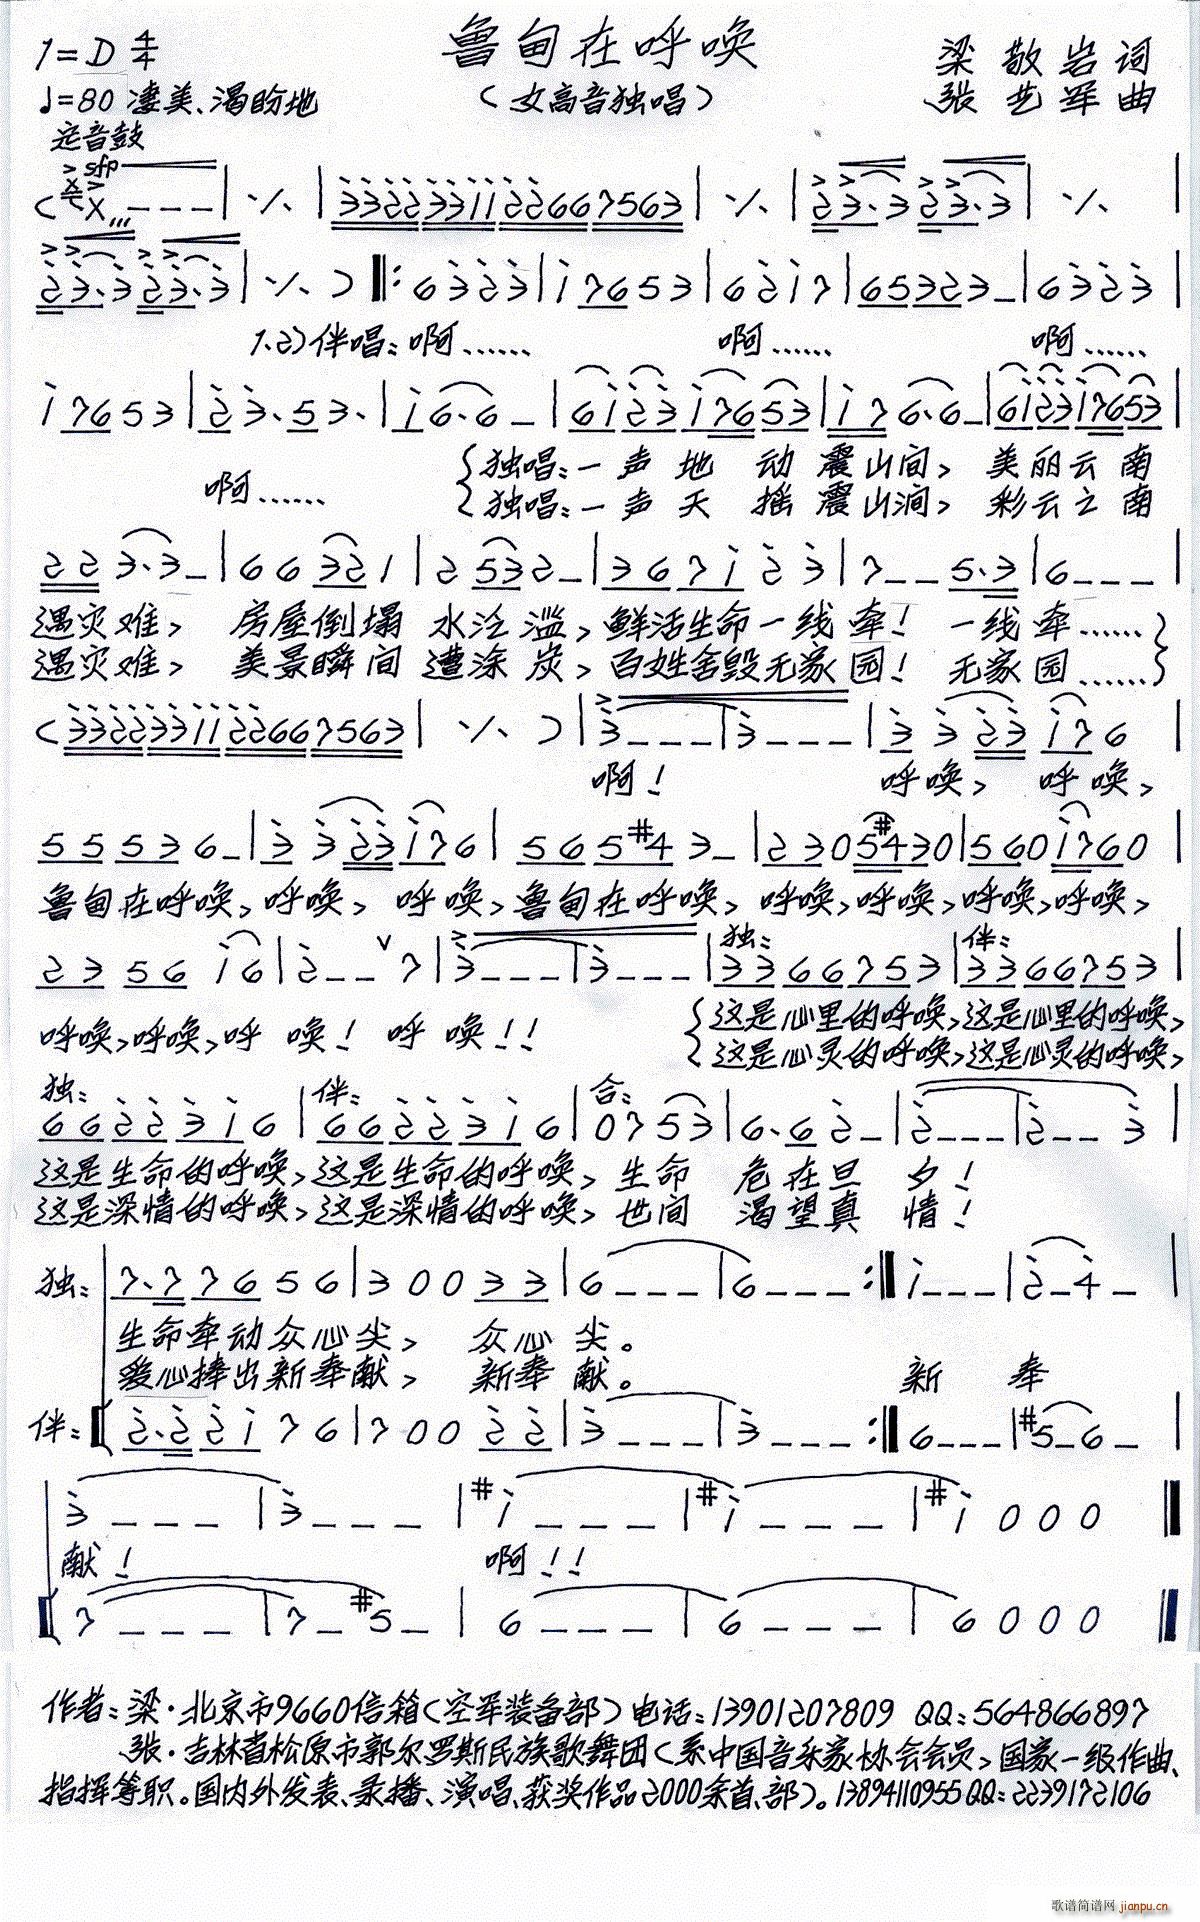 鲁甸在呼唤
1=D 4/4
梁敬岩词
♩=80 凄美、渴盼地
(女高音独唱)
张艺军曲
定音鼓
sfp
1.2)伴唱:啊…… 啊…… 啊……
啊……
独唱:一声地动震山间, 美丽云南
独唱:一声天摇震山涧, 彩云之南
遇灾难, 房屋倒塌水泛滥,鲜活生命一线牵! 一线牵……
遇灾难, 美景瞬间遭涂炭,百姓舍毁无家园! 无家园……
啊! 呼唤, 呼唤,
鲁甸在呼唤,呼唤, 呼唤,鲁甸在呼唤, 呼唤,呼唤,呼唤,呼唤,
独: 伴:
呼唤,呼唤,呼唤! 呼唤!!
这是心里的呼唤,这是心里的呼唤,
这是心灵的呼唤,这是心灵的呼唤,
独: 伴: 合:
这是生命的呼唤,这是生命的呼唤,生命 危在旦夕!
这是深情的呼唤,这是深情的呼唤,世间 渴望真情!
独:
生命牵动众心尖, 众心尖。
爱心捧出新奉献, 新奉献。 新奉
伴:
献! 啊!!
作者:梁·北京市9660信箱(空军装备部)电话:13901207809 QQ:564866897
张·吉林省松原市郭尔罗斯民族歌舞团(系中国音乐家协会会员,国家一级作曲、
指挥等职。国内外发表、录播、演唱、获奖作品2000余首、部)。13894110955QQ:2239172106
歌谱简谱网
jianpu.cn